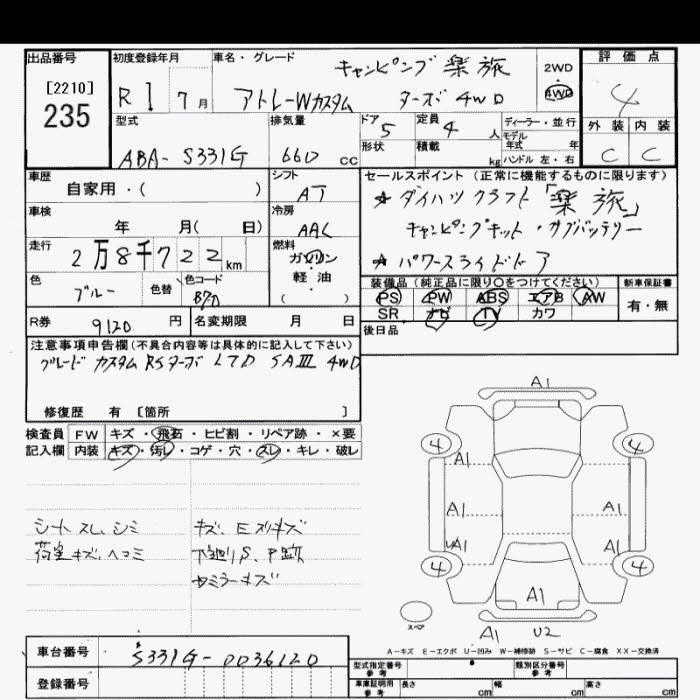 出品番号
[2210]
235
初度登録年月
R1 7月
車名・グレード
キャンピング 楽旅
アトレーWカスタム ターボ 4WD
2WD
4WD
評価点
4
外装 内装
C C
型式
ABA-S331G
排気量
660 cc
ドア
5
定員
4 人
形状
積載
kg
ディーラー・並行
モデル
年式 年
ハンドル 左・右
車歴
自家用・( )
シフト
AT
車検
年 月( 日)
冷房
AAC
走行
2万8千722km
燃料
ガソリン
軽油
( )
色
ブルー
色替
色コード
B70
R券
9120 円
名変期限 月 日
セールスポイント(正常に機能するものに限ります)
★ダイハツ クラフト「楽旅」
キャンピングキット・サブバッテリー
★パワースライドドア
装備品(純正品に限り○をつけてください)
PS PW ABS エアB AW
SR ナビ TV カワ
新車保証書
有・無
後日品
注意事項申告欄(不具合内容等は具体的に記入して下さい)
グレード カスタム RSターボ LTD SAⅢ 4WD
修復歴 有 [箇所 ]
検査員 FW キズ・飛石・ヒビ割・リペア跡・×要
記入欄 内装 キズ・汚レ・コゲ・穴・スレ・キレ・破レ
シート スレ、シミ
荷室 キズ、ヘコミ
キズ、Eズリキズ
下廻りS、P跡
ミラーキズ
A1
4
4
A1
A1
A1
A1
A1
4
4
A1
スペア
A1 U2
A-キズ E-エクボ U-凹み W-補修跡 S-サビ C-腐食 XX-交換済
車台番号
S331G-0036120
登録番号
型式指定番号
参考
類別区分番号
参考
車庫証明用
参考
長さ cm
幅 cm
高さ cm